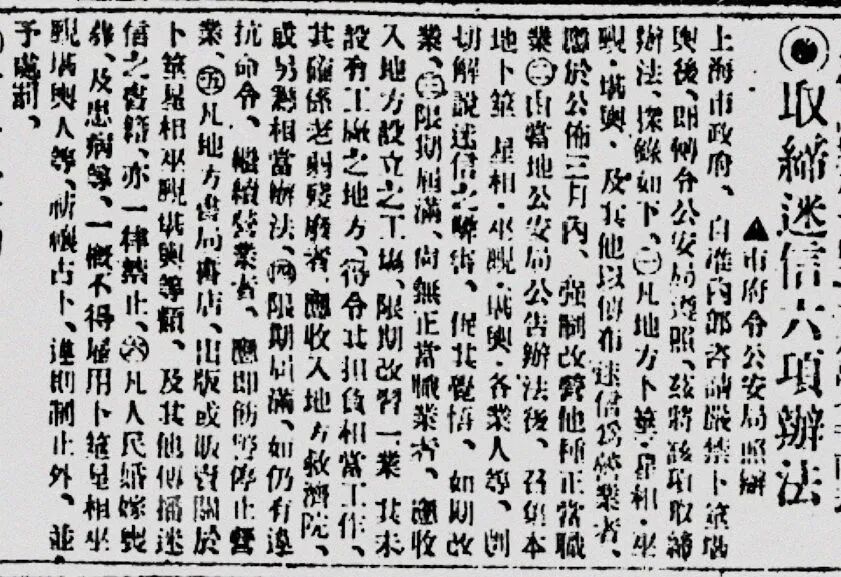 取締迷信六項辦法
▲市府令公安局照辦
上海市政府、自准內部咨請嚴禁卜筮堪
輿後、即轉令公安局遵照、茲將該項取締
辦法、探錄如下、㊀凡地方卜筮·星相·巫
覡·堪輿·及其他以傳布迷信爲營業者、
應於公佈三月內、強制改營他種正當職
業㊁由當地公安局公告辦法後、召集本
地卜筮·星相·巫覡·堪輿·各業人等、剴
切解說迷信之弊害、促其覺悟、如期改
業、㊂限期屆滿、尙無正當職業者、應收
入地方設立之工塲、限期改習一業、其未
設有工廠之地方、得令其担負相當工作、
其確係老弱殘廢者、應收入地方救濟院、
或另爲相當辦法、㊃限期屆滿、如仍有違
抗命令、繼續營業者、應即飭警停止營
業、㊄凡地方書局書店、出版或販賣關於
卜筮星相巫覡堪輿等類、及其他傳播迷
信之書籍、亦一律禁止、㊅凡人民婚嫁喪
葬、及患病等、一概不得雇用卜筮星相巫
覡堪輿人等、祈禳占卜、違則制止外、並
予處罰、